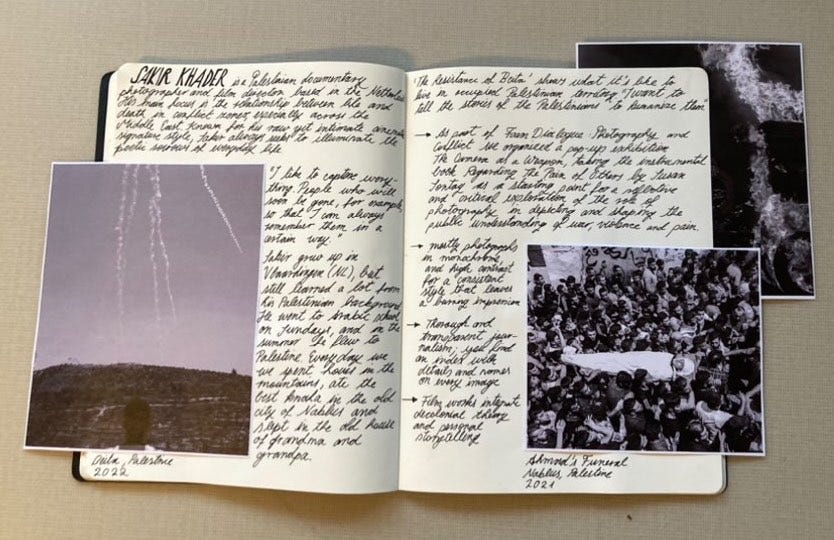 SAKIR KHADER is a Palestinian documentary
photographer and film director based in the Netherlands
His main focus is the relationship between life and
death in conflict zones, especially across the
Middle East. Known for his raw yet intimate cinematic
signature style, Sakir always seeks to illuminate the
poetic sorrows of everyday life
"I like to capture every-
thing. People who will
soon be gone, for example,
so that I can always
remember them in a
certain way."
Sakir grew up in
Vlaardingen (NL), but
still learned a lot from
his Palestinian background
He went to Arabic school
on Sundays, and in the
summer he flew to
Palestine. Every day we
we spent hours in the
mountains, ate the
best knafa in the old
city of Nablus and
slept in the old house
of grandma and
grandpa.
Beita, Palestine
2022
'The Resistance of Beita' shows what it's like to
live in occupied Palestinian territory "I want to
tell the stories of the Palestinians to humanize them"
→ As part of Foam Dialogue: Photography and
conflict we organised a pop-up exhibition
The Camera as a Weapon, taking the instrumental
book Regarding the Pain of Others by Susan
Sontag as a starting point for a reflective
and critical exploration of the role of
photography in depicting and shaping the
public understanding of war, violence and pain.
→ mostly photographs
in monochrome
and high contrast
for a consistent
style that leaves
a burning impression
→ Thorough and
transparent jour-
nalism; you find
an index with
details and names
on every image
→ Film works integrate
decolonial theory
and personal
storytelling
Ahmad's Funeral
Nablus, Palestine
2021